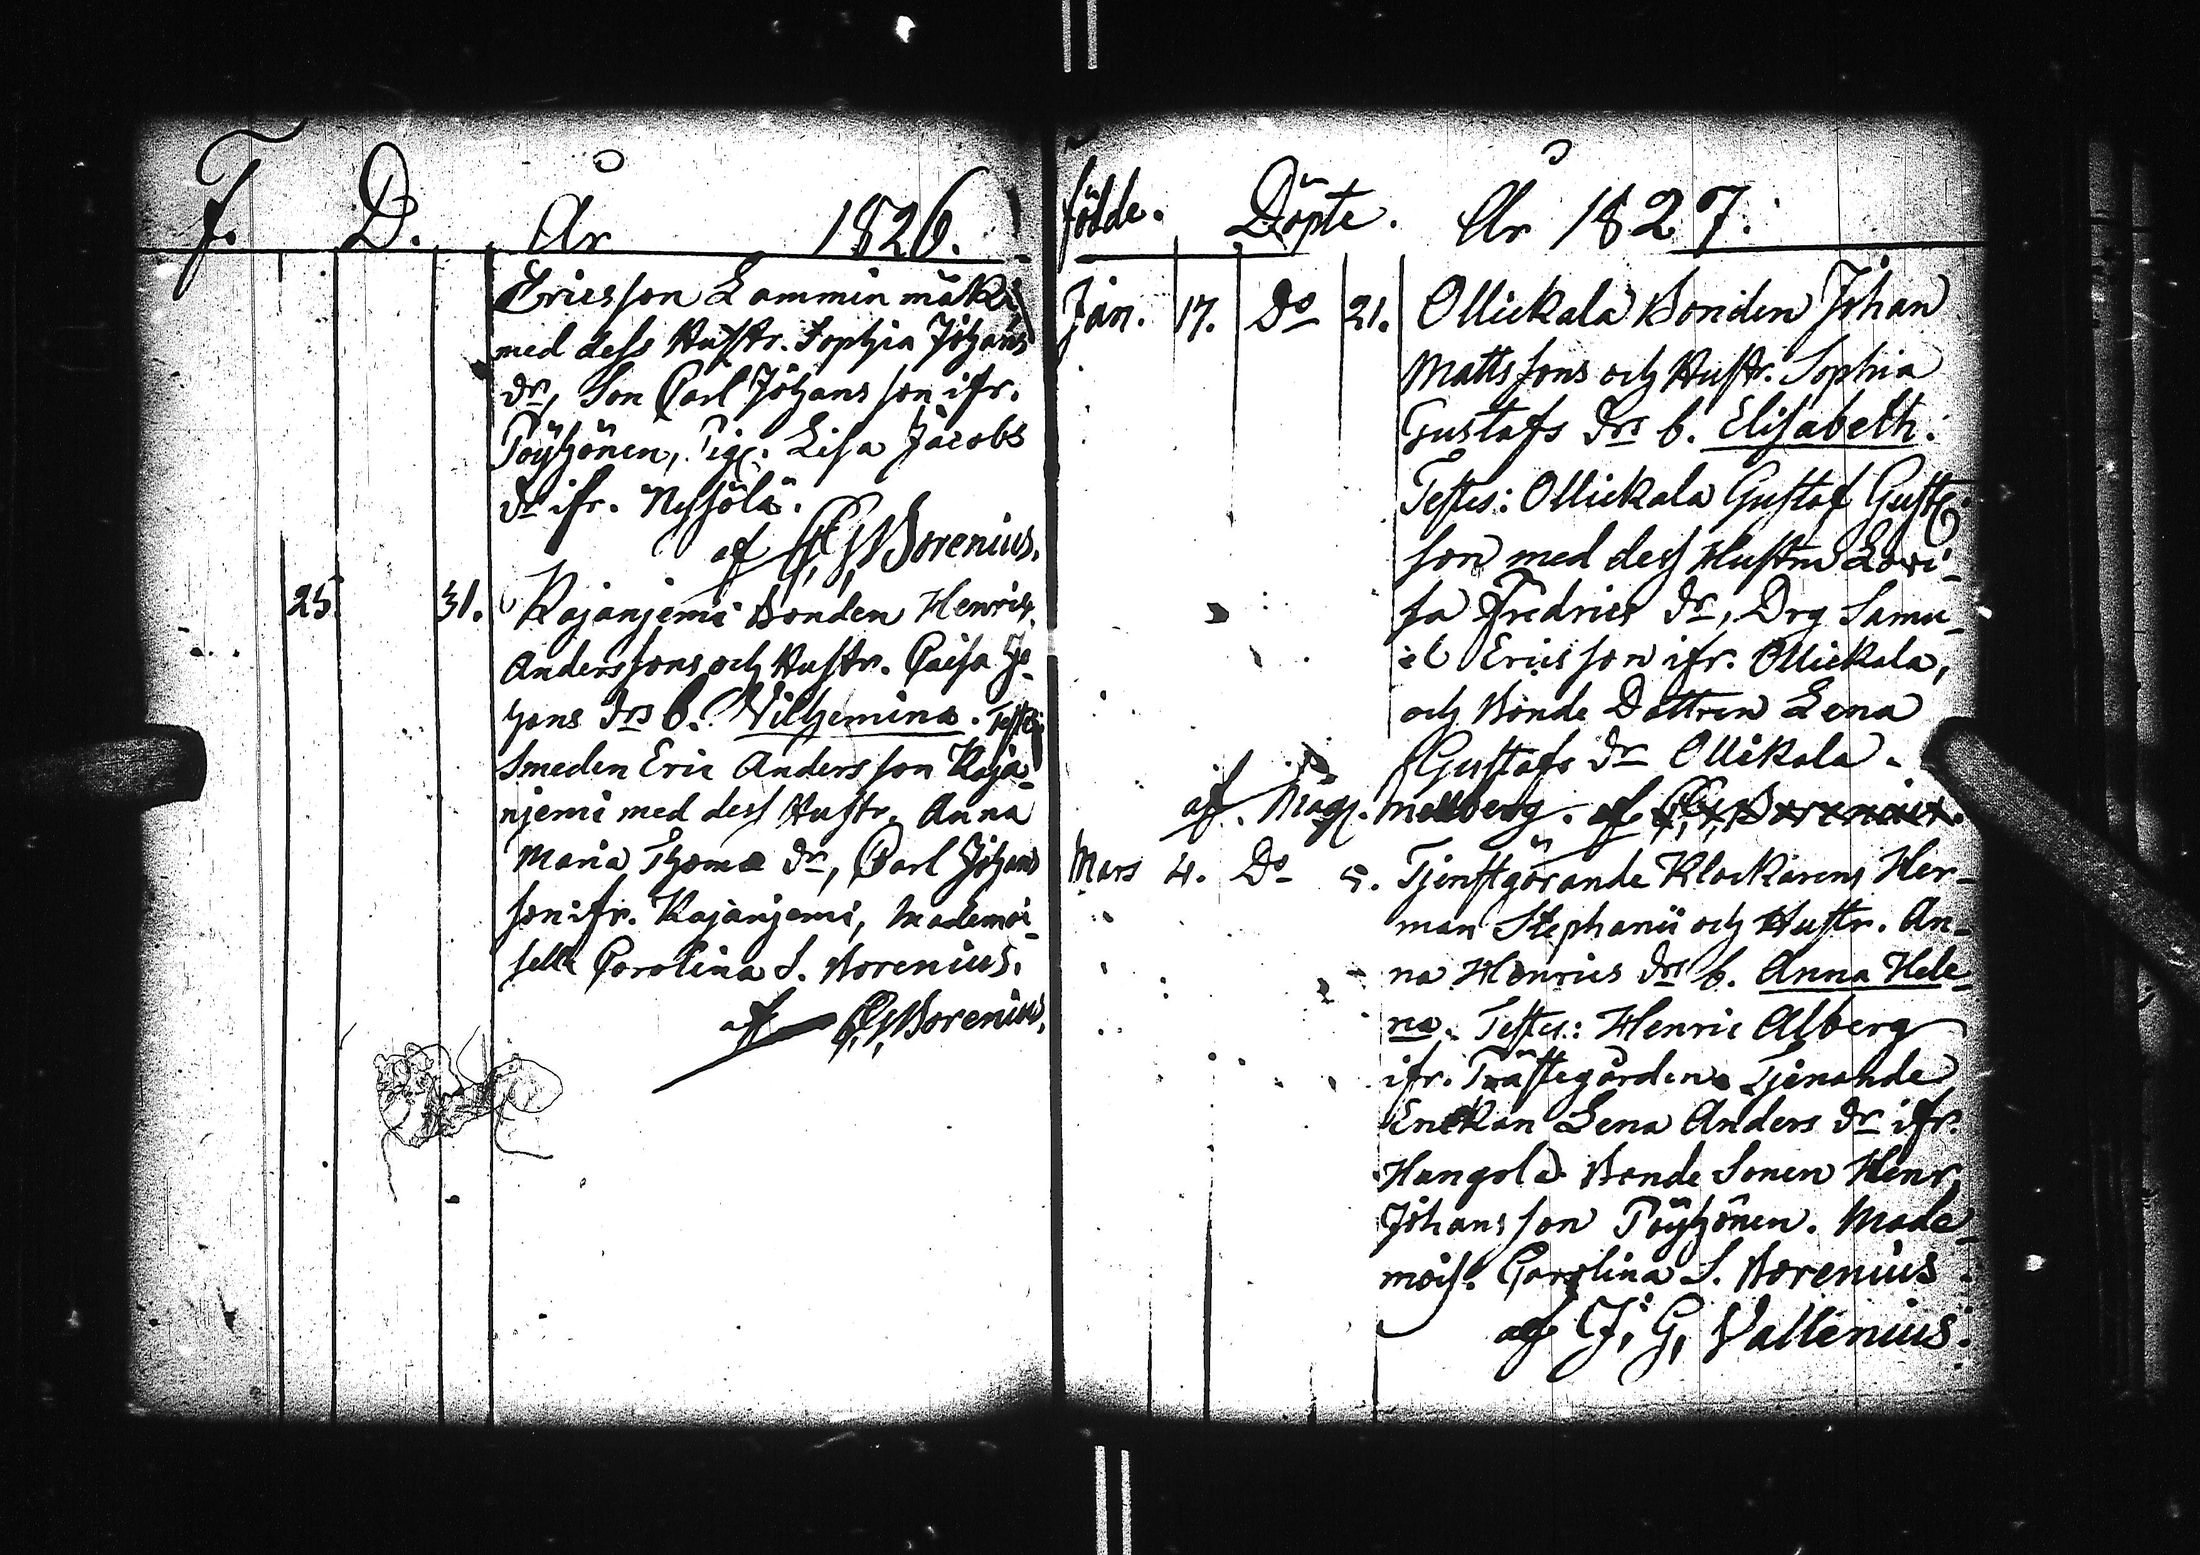 F. D. År 1826.
Ericsson Lamminmäki
med dess Hustr. Sophia Johans
dr, Son Carl Johansson ifr.
Pöyhönen, Pig. Lisa Jacobs
dr ifr.
af C, G, Borenius.
25. 31. Kajanjemi Bonden Henric
Anderssons och Hustr. Caisa Jo-
hans drs b. Vilhemina. Testes
Smeden Eric Andersson Kaja-
njemi med dess Hustr. Anna
Maria Thomæ dr, Carl Johans
son ifr. Kajanjemi, Mademoi-
selle Carolina S. Borenius.
af C, G, Borenius.
födde. Döpte. År 1827.
Jan. 17. Do 21. Ollickala Bonden Johan
Mattssons och Hustr. Sophia
Gustafs drs b. Elisabeth.
Testes: Ollickala Gustaf Gust.
son med dess Hustru Lovi-
sa Fredrics dr, Drg Samu-
el Ericsson ifr. Ollickala,
och Bonde Dottren Lena
Gustafs dr Ollikala.
af. Mag. Mellberg. af C, G, Borenius.
Mars 4. Do 5. Tjenstgörande Klockarens Her-
man Stephanii och Hustr. An-
na Henrics drs b. Anna Hele-
na. Testes: Henric Alberg
ifr. Prästegården Tjenande
Enckan Lena Anders dr ifr.
Hangola Bonde Sonen Henr.
Johansson Pöyhönen. Made-
mois. Carolina S. Borenius.
af J, G, Vallenius.